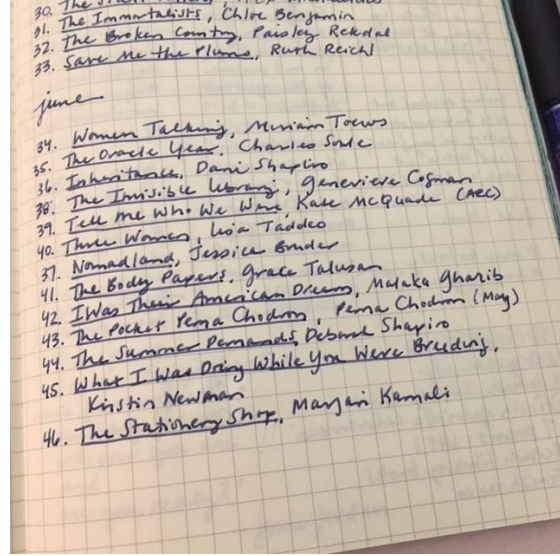 30. The
31. The Immortalists, Chloe Benjamin
32. The Broken Country, Paisley Rekdal
33. Save Me the Plums, Ruth Reichl
june
34. Women Talking, Miriam Toews
35. The Oracle Year, Charles Soule
36. Inheritance, Dani Shapiro
38. The Invisible Library, Genevieve Cogman
39. Tell Me Who We Were, Kate McQuade (ARC)
40. Three Women, Lisa Taddeo
37. Nomadland, Jessica Bruder
41. The Body Papers, Grace Talusan
42. I Was Their American Dream, Malaka Gharib
43. The Pocket Pema Chodron, Pema Chodron (May)
44. The Summer Demands, Deborah Shapiro
45. What I Was Doing While You Were Breeding,
Kristin Newman
46. The Stationery Shop, Marjan Kamali